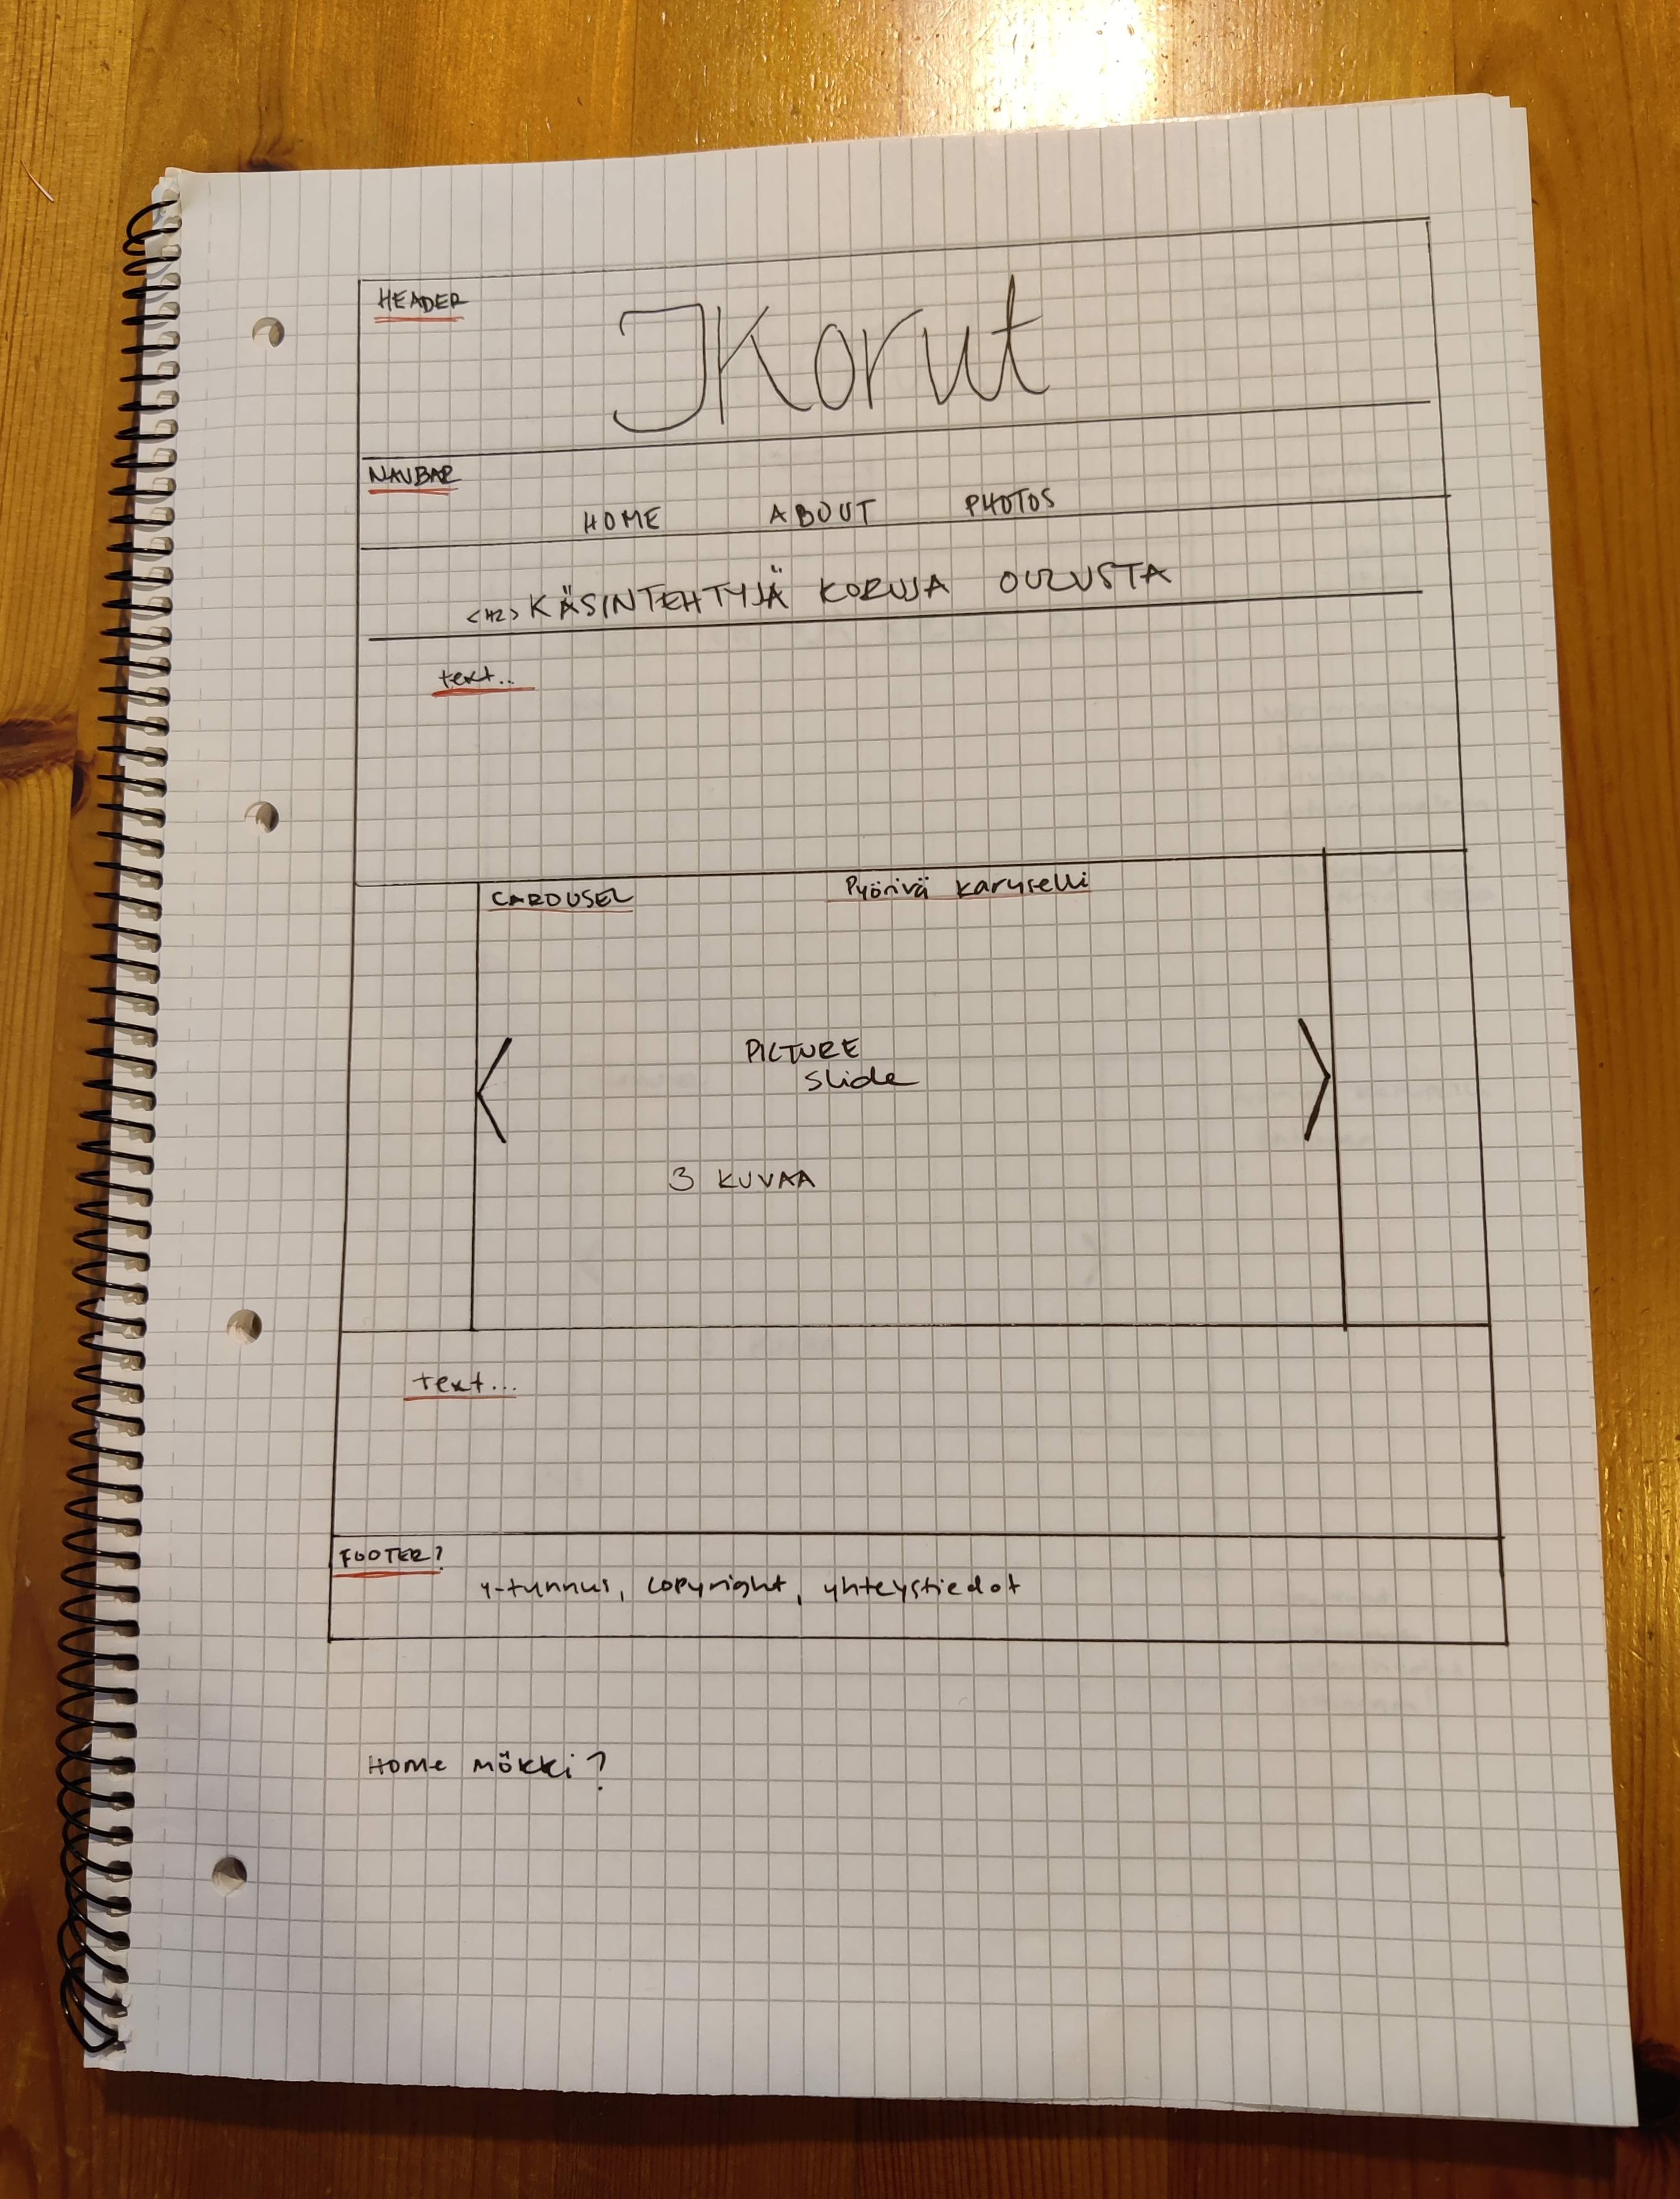 HEADER
JKorut
NAVBAR
HOME ABOUT PHOTOS
<H2> KÄSINTEHTYJÄ KORUJA OULUSTA
text..
CAROUSEL Pyörivä karuselli
PICTURE
slide
3 KUVAA
text...
FOOTER?
y-tunnus, copyright, yhteystiedot
Home mökki?